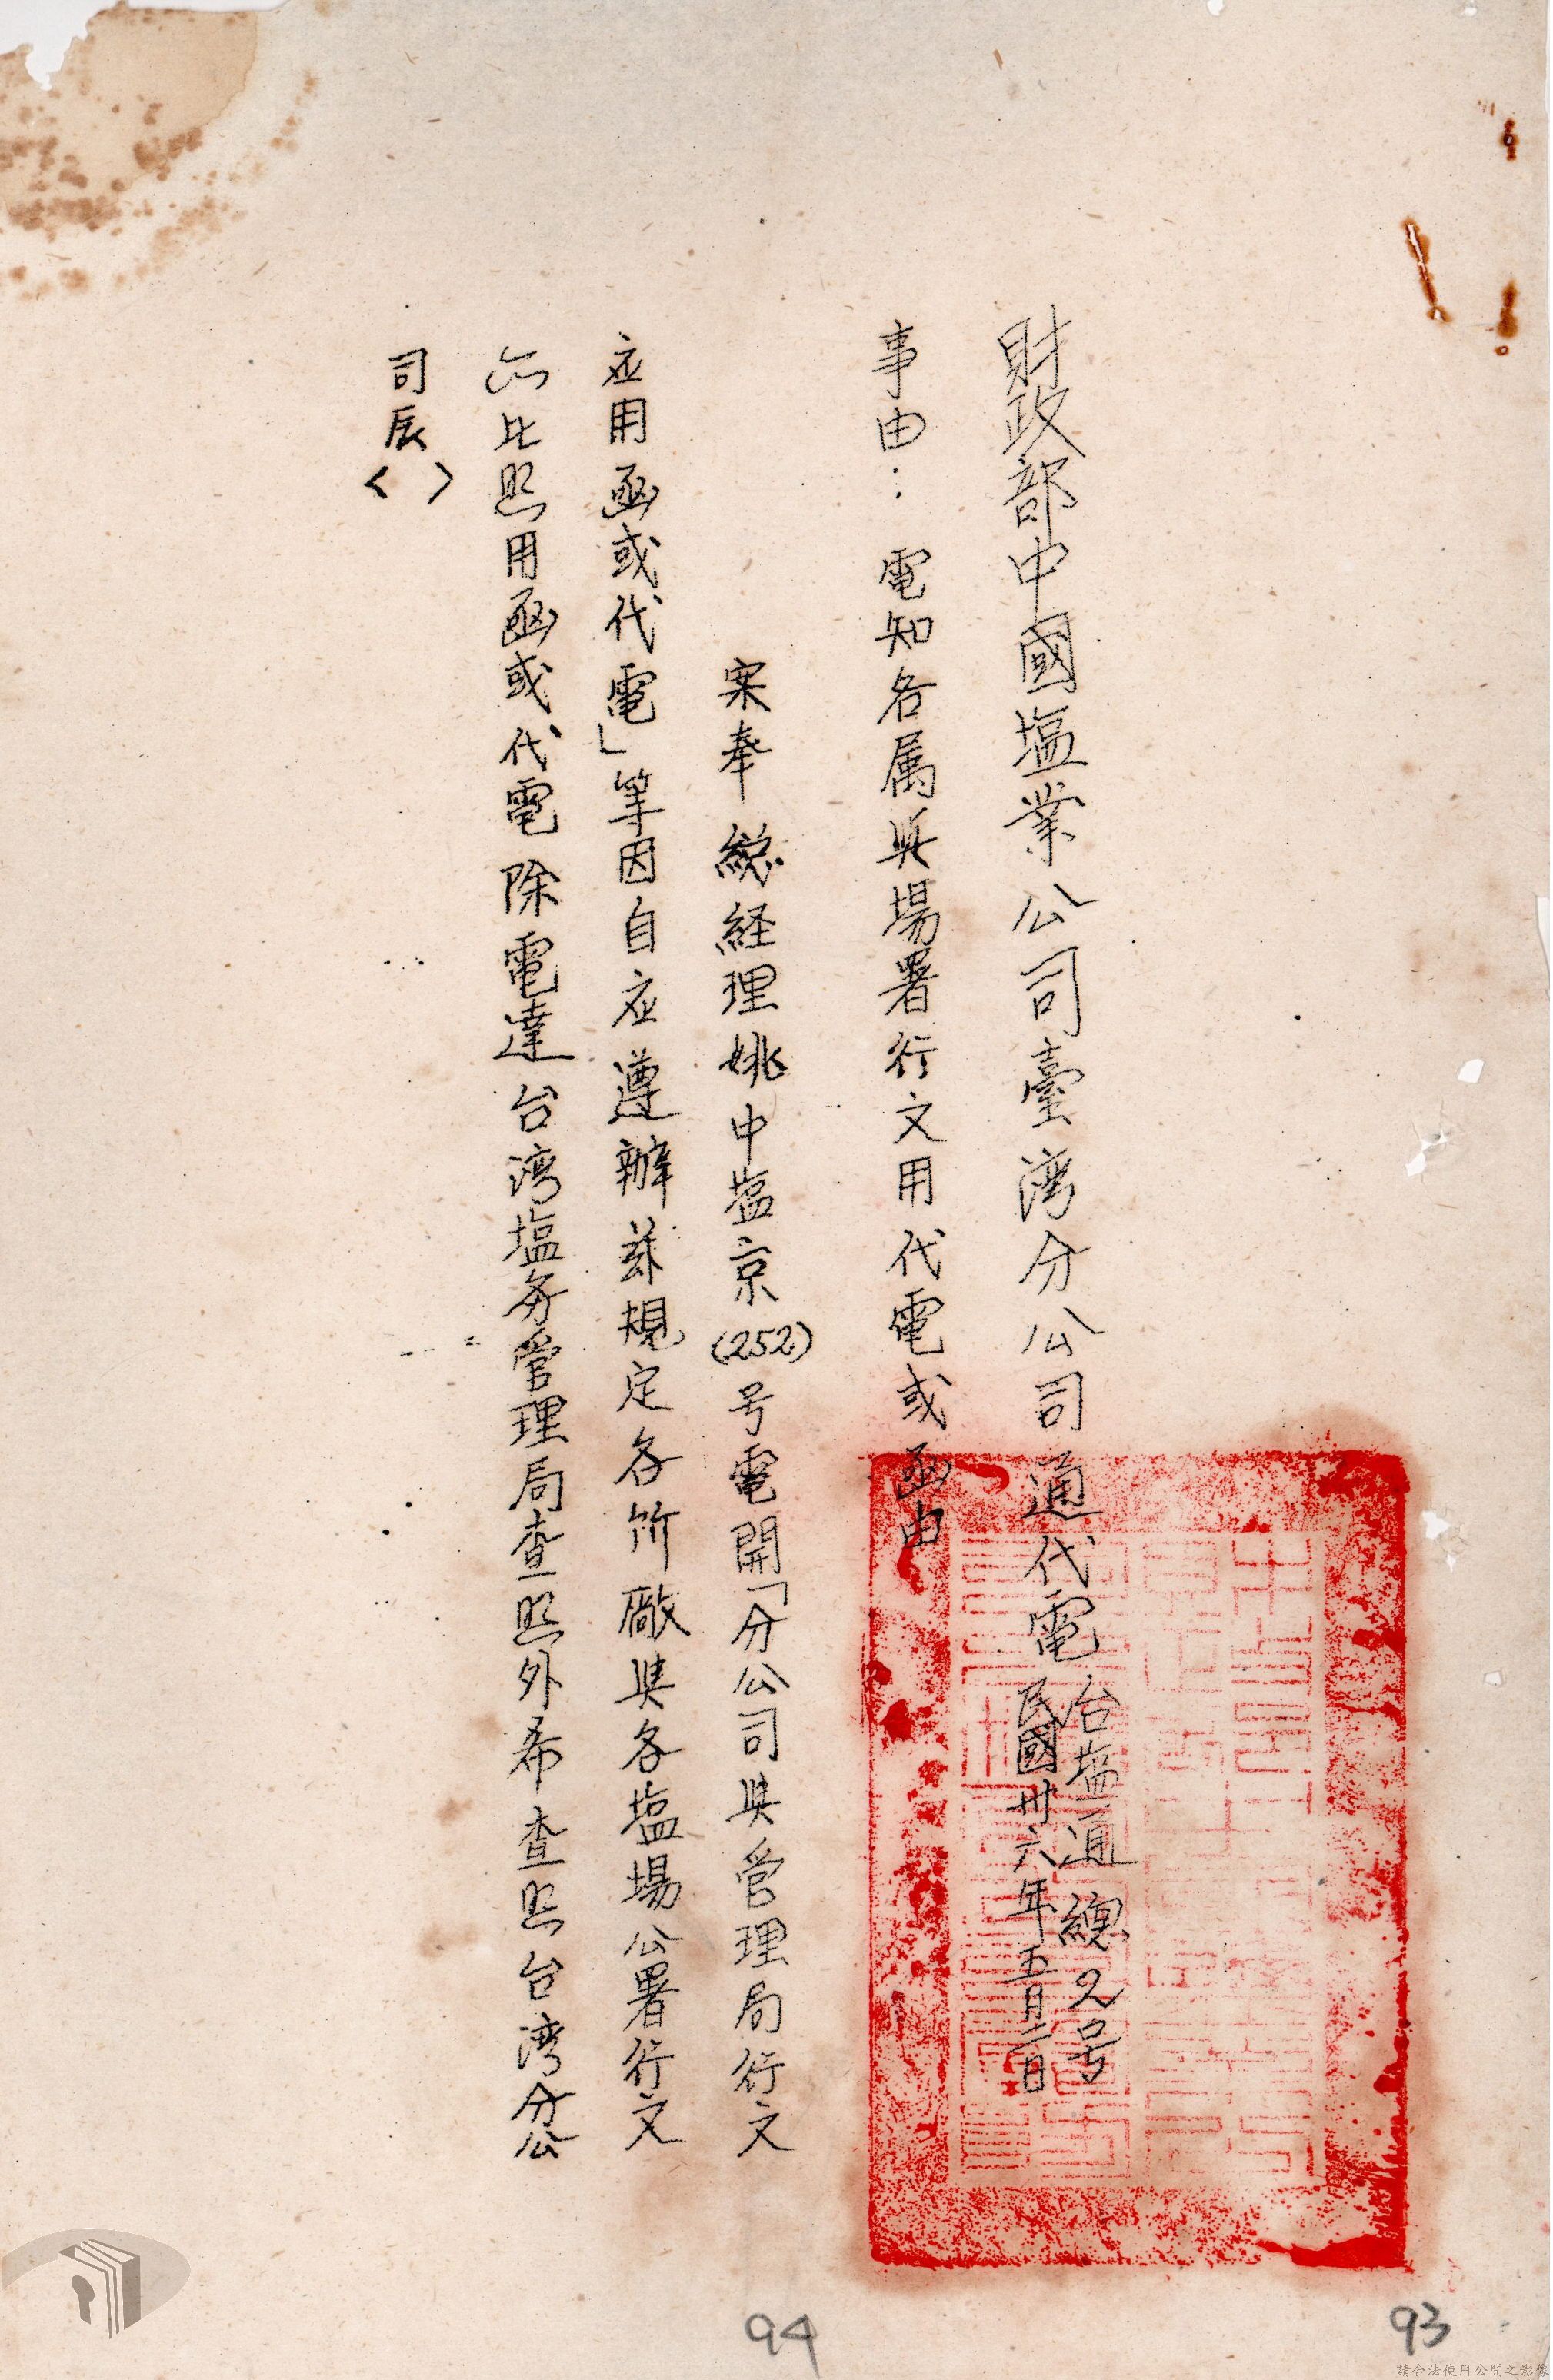 財政部中國塩業公司臺湾分公司通代電
台塩通總2号
民國卅六年五月二日
事由：電知各属與場署行文用代電或函由
案奉總経理姚中塩京(252)号電開「分公司與管理局行文
应用函或代電」等因自应遵辦茲規定各所廠與各塩場公署行文
亦比照用函或代電除電達台湾塩务管理局查照外希查照台湾分公
司辰〈 〉
94
93
請合法使用公開之影像